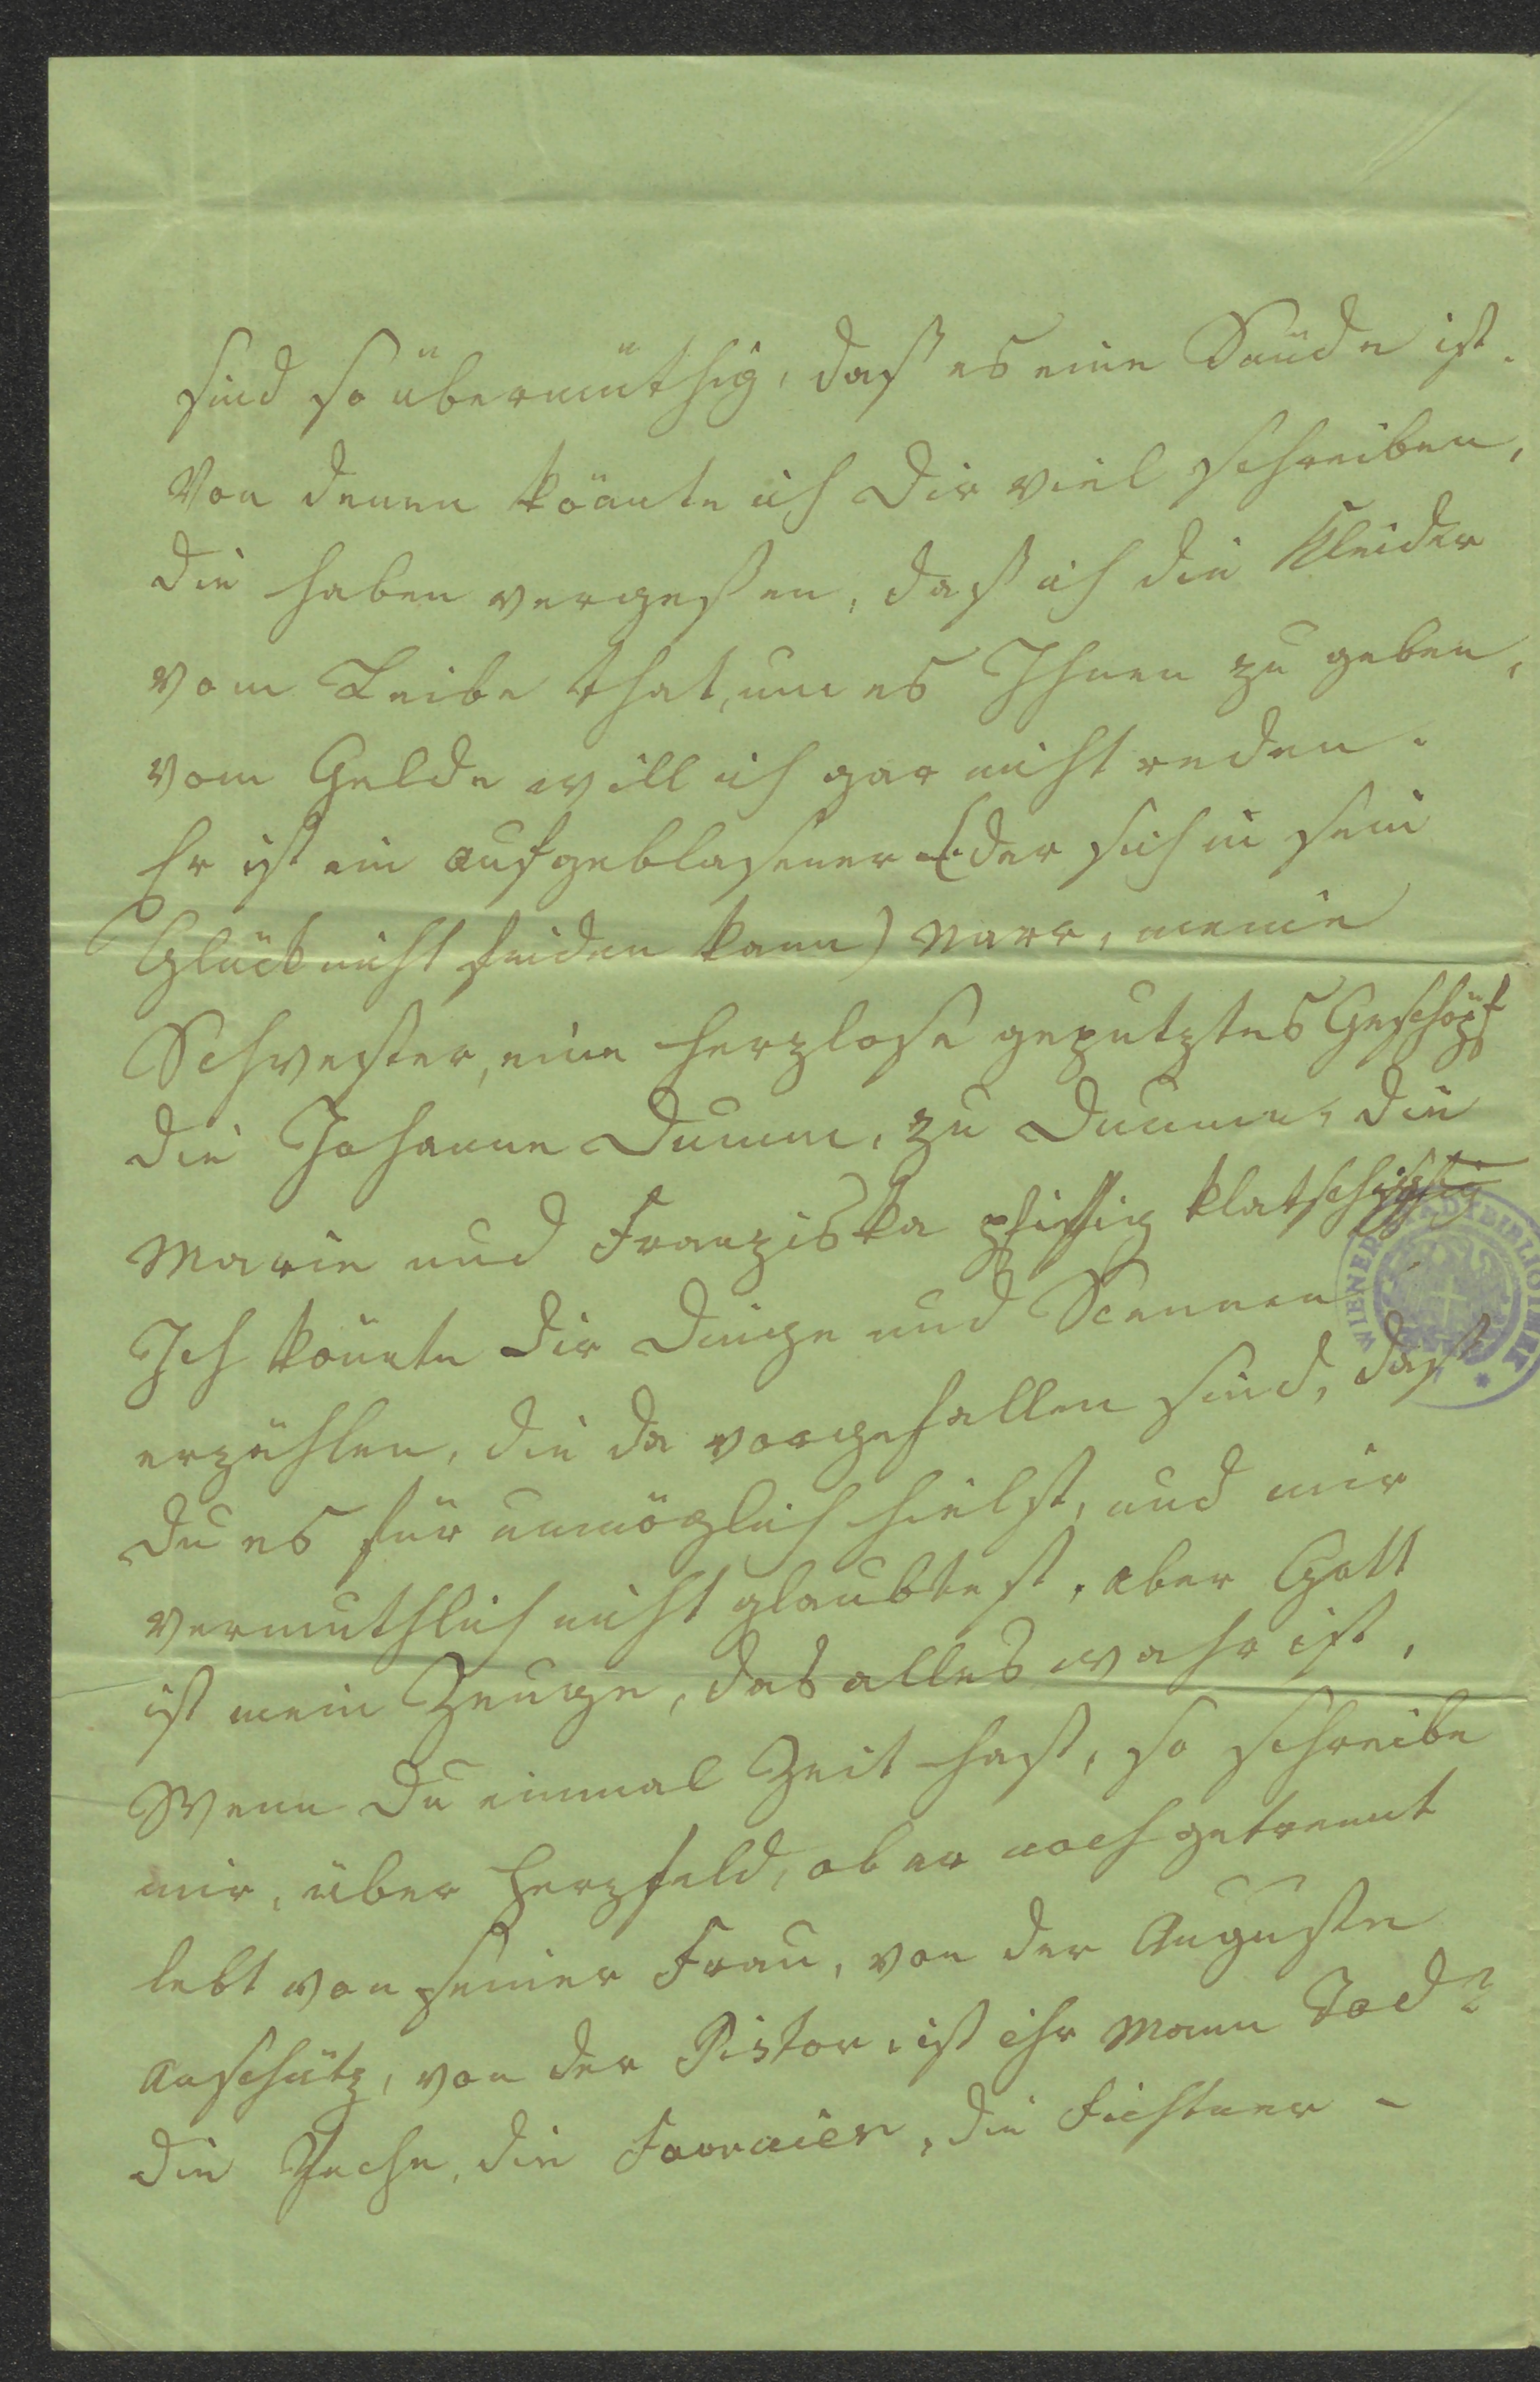 sind so übermüthig, daß es eine Sünde ist.
Von denen könnte ich Dir viel schreiben,
die haben vergeßen, daß ich die Kleider
vom Leibe that, um es Ihnen zu geben,
vom Gelde will ich gar nicht reden.
Er ist ein aufgeblasener (der sich in sein
Glück nicht finden kann) Narr, meine
Schwester, eine herzlose geputztes Geschöpf
die Johanne Dumm, zu Dumm, die
Marie und Franziska pfiffig klatschig
Ich könnte Dir Dinge und Scennen
erzählen, die da vorgefallen sind, daß
Du es für unmöglich hielst, und mir
vermuthlich nicht glaubtest. aber Gott
ist mein Zeuge, das alles wahr ist.
Wenn Du einmal Zeit hast, so schreibe
mir, über Herzfeld, ob er noch getrennt
lebt von seiner Frau, von der Auguste
Anschütz, von der Pistor, ist ihr Mann Tod?
die die die Fichtner -
WIENER STADTBIBLIOTHEK